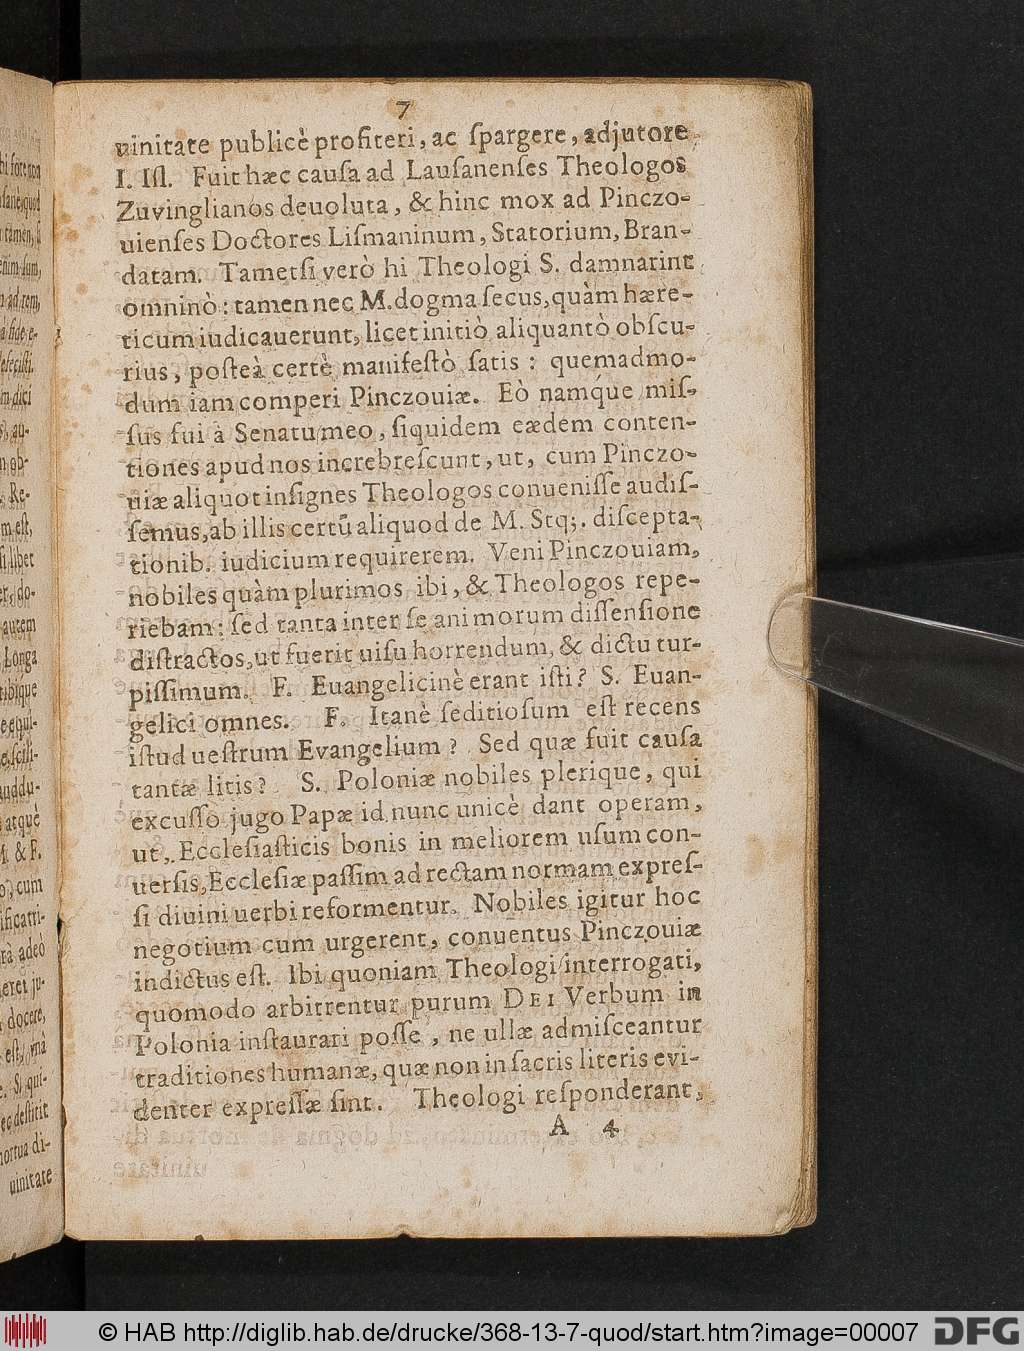 7
uinitate publicè profiteri, ac ſpargere, adjutore
I. Iſl. Fuit hæc cauſa ad Lauſanenſes Theologos
Zuvinglianos deuoluta, & hinc mox ad Pinczo-
uienſes Doctores Liſmaninum, Statorium, Bran-
datam. Tametſi verò hi Theologi S. damnarint
omninò: tamen nec M. dogma ſecus, quàm hære-
ticum iudicauerunt, licet initiò aliquantò obſcu-
rius, poſteà certè manifeſtò ſatis: quemadmo-
dum iam comperi Pinczouiæ. Eò namq́ue miſ-
ſus fui à Senatu meo, ſiquidem eædem conten-
tiones apud nos increbreſcunt, ut, cum Pinczo-
uiæ aliquot inſignes Theologos conueniſſe audiſ-
ſemus, ab illis certũ aliquod de M. Stq;. diſcepta-
tionib. iudicium requirerem. Veni Pinczouiam,
nobiles quàm plurimos ibi, & Theologos repe-
riebam: ſed tanta inter ſe animorum diſſenſione
diſtractos, ut fuerit uiſu horrendum, & dictu tur-
piſſimum. F. Euangelicinè erant iſti? S. Euan-
gelici omnes. F. Itanè ſeditioſum eſt recens
iſtud ueſtrum Evangelium? Sed quæ fuit cauſa
tantæ litis? S. Poloniæ nobiles plerique, qui
excuſſo jugo Papæ id nunc unicè dant operam,
ut, Eccleſiaſticis bonis in meliorem uſum con-
uerſis, Eccleſiæ paſſim ad rectam normam expreſ-
ſi diuini uerbi reformentur. Nobiles igitur hoc
negotium cum urgerent, conuentus Pinczouiæ
indictus eſt. Ibi quoniam Theologi interrogati,
quomodo arbitrentur purum DEI Verbum in
Polonia inſtaurari poſſe, ne ullæ admiſceantur
traditiones humanæ, quæ non in ſacris literis evi-
denter expreſſæ ſint. Theologi reſponderant,
A 4
© HAB http://diglib.hab.de/drucke/368-13-7-quod/start.htm?image=00007
DFG